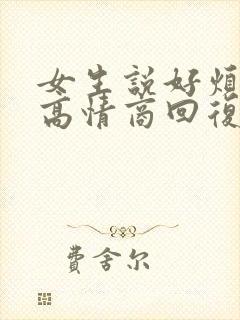 女生説好煩
高情商回復
費舍尔